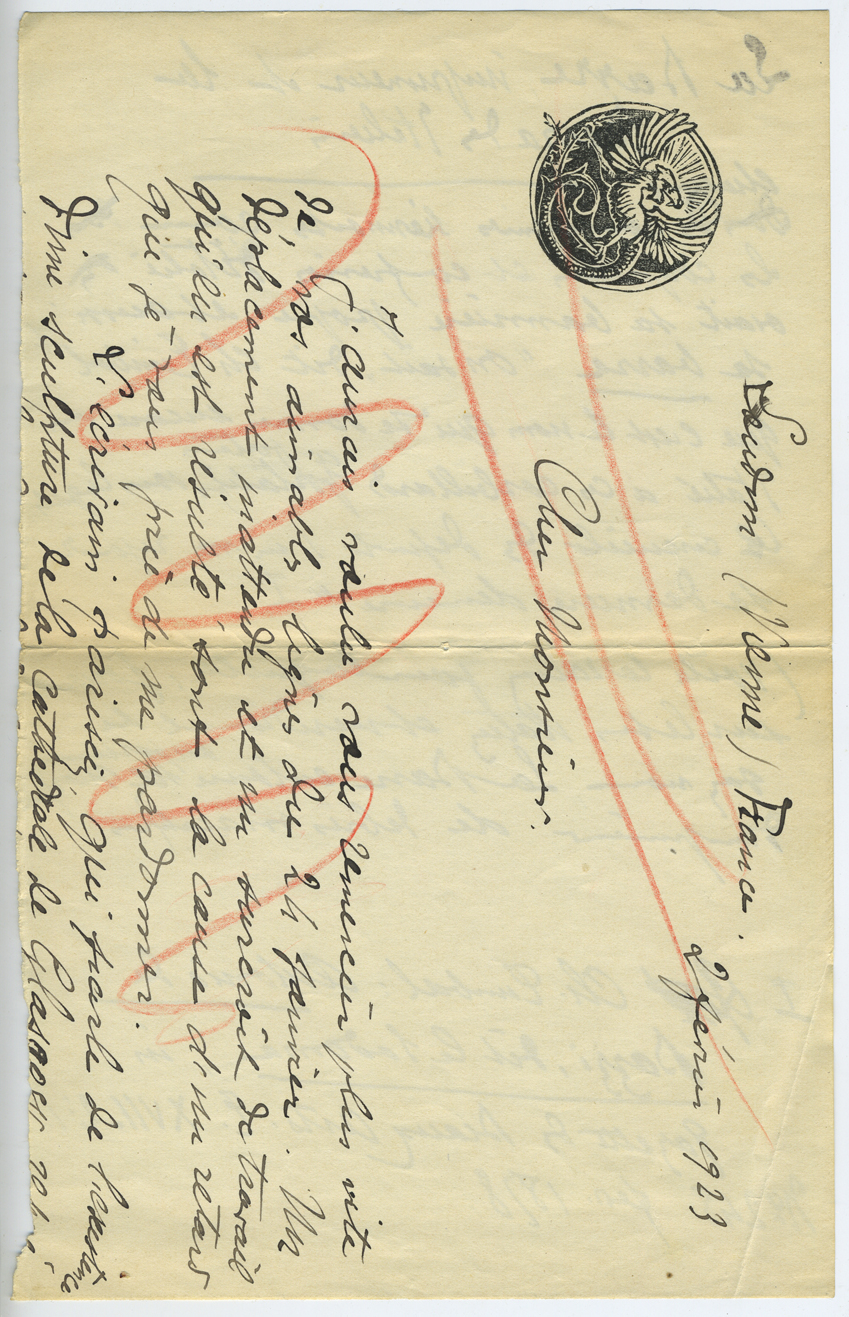 Loudun (Vienne) France.
2 février 1923
Cher Monsieur.
J'aurais voulu vous remercier plus vite
de vos aimables lignes du 24 janvier. Un
déplacement inattendu et un surcroît de travail
qui en est résulté sont la cause d'un retard
que je vous prie de me pardonner.
L'écrivain parisien qui parle de l'existence
d'une sculpture de la Cathédrale de Glasgow